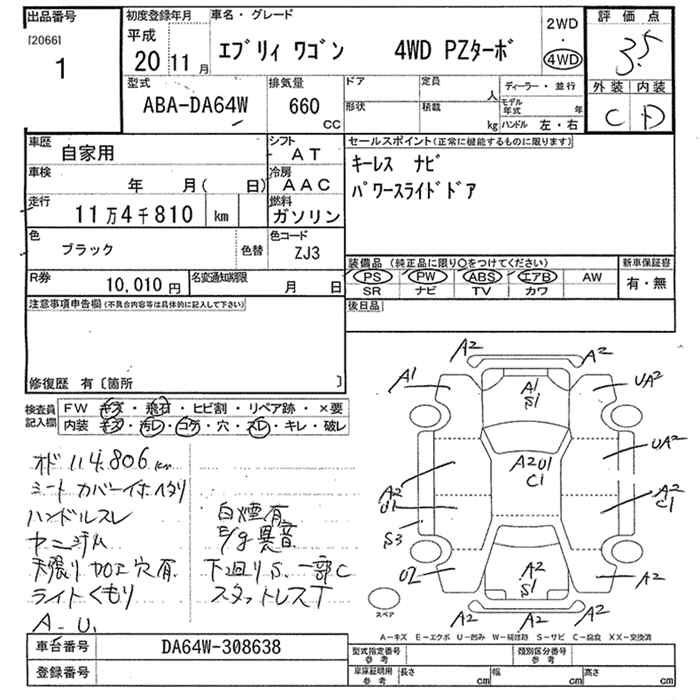 出品番号 初度登録年月 車名・グレード 2WD ・ 4WD 評価点
[2066] 平成 20 11月 エブリィ ワゴン 4WD PZターボ 3.5
1 型式 排気量 ドア 定員 人 ディーラー・並行 外装 内装
ABA-DA64W 660 CC 形状 積載 kg モデル年式 年 C D
ハンドル 左・右
車歴 自家用 シフト AT セールスポイント(正常に機能するものに限ります)
車検 年 月( 日) 冷房 AAC キーレス ナビ
走行 11万4千810 km 燃料 ガソリン パワースライドドア
色 ブラック 色替 色コード ZJ3 装備品(純正品に限り○をつけてください) 新車保証書
R券 10,010円 名変通知期限 月 日 PS PW ABS エアB AW 有・無
SR ナビ TV カワ
注意事項申告欄(不具合内容等は具体的に記入して下さい) 後日品
修復歴 有〔箇所 〕
検査員記入欄 FW キズ・飛石・ヒビ割・リペア跡・×要
内装 キズ・汚レ・コゲ・穴・スレ・キレ・破レ
オド 114,806km
シートカバー付 ヘタリ
ハンドルスレ 白煙有
ヤニジム E/g異音
天張り加工穴有 下廻りS、一部C
ライトくもり スタットレスT
A-U
A2 A2
A1 A1 S1 UA2
UA2
A2 U1 A2U1 C1 A2 C1
S3
U2 A2 S1 A2
A2 A2
スペア
A−キズ E−エクボ U−凹み W−補修跡 S−サビ C−腐食 XX−交換済
車台番号 DA64W-308638 型式指定番号 参考 類別区分番号 参考
登録番号 車庫証明用 参考 長さ cm 幅 cm 高さ cm